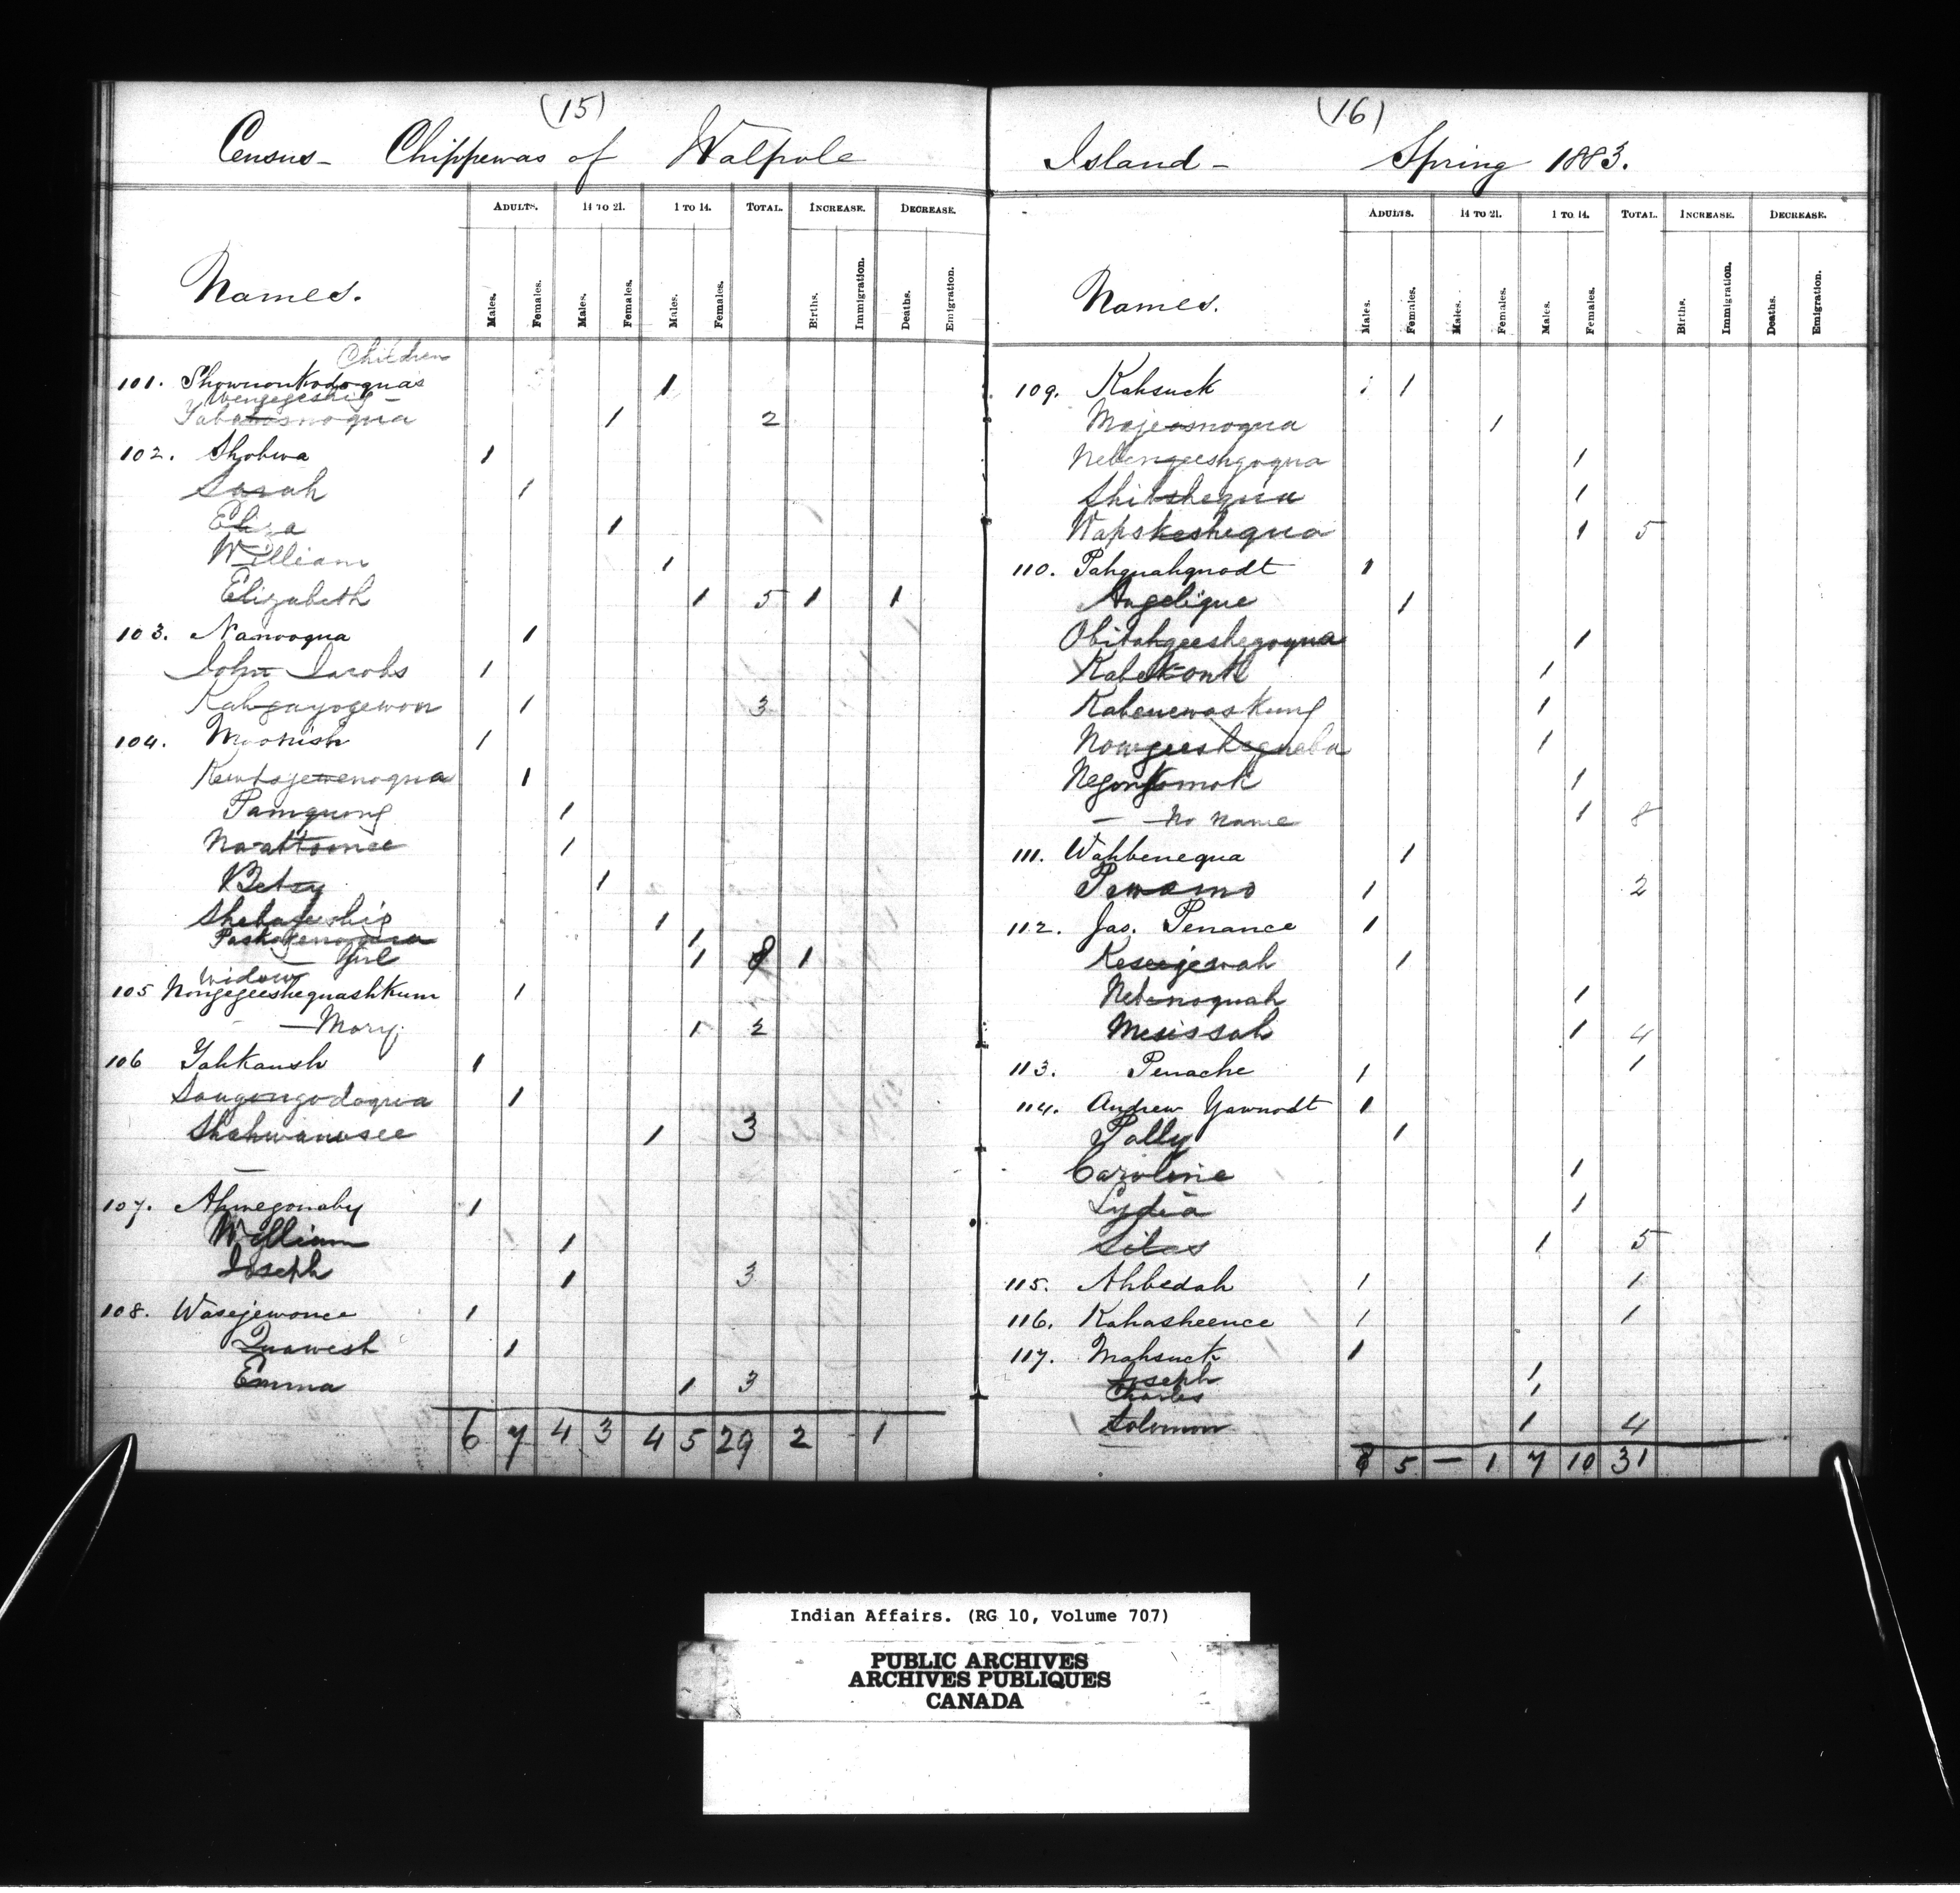 (15)
Census - Chippewas of Walpole
ADULTS. 14 TO 21. 1 TO 14. TOTAL. INCREASE. DECREASE.
Names. Males. Females. Males. Females. Males. Females. Births. Immigration. Deaths. Emigration.
Children
101. Shownonkodoquas 1
Wengegeshig -
1 2
102. Shobwa 1
Sarah 1
Eliza 1
William 1
Elizabeth 1 5 1 1
103. Nanooqua 1
John Jacobs 1
Kahgayogewon 1 3
104. Mookish 1
Kewtajewenoqua 1
Pamquong 1
Na-attoonee 1
Betsy 1
Shebageshig 1
Paskagenoqua 1
- Girl 1 8 1
Widow
105 Nongegeeshequashkum 1
- Mary. 1 2
106 Yahkaush 1
Saugongodoqua 1
Shahwanosee 1 3
-
107. Ahmegonaby 1
William 1
Joseph 1 3
108. Wasejewonce 1
Quawesh 1
Emma 1 3
6 7 4 3 4 5 29 2 1
(16)
Island - Spring 1883.
ADULTS. 14 TO 21. 1 TO 14. TOTAL. INCREASE. DECREASE.
Names. Males. Females. Males. Females. Males. Females. Births. Immigration. Deaths. Emigration.
109. Kahsuck 1
Majeosnoqua 1
Nebengeeshgoqua 1
Shibshequa 1
Wapskeshequa 1 5
110. Pahquahquodt 1
Angelique 1
Obitahgeeshegoqua 1
Kabekonk 1
Kabenewaskung 1
Nowgeeshegnaba 1
Negongomok 1
- No name 1 8
111. Wahbenequa 1
Pewamo 1 2
112. Jas. Penance 1
Keseejewah 1
Nebenoquah 1
Mesissah 1 4
113. Penache 1 1
114. Andrew Yawnodt 1
Polly 1
Caroline 1
Lydia 1
Silas 1 5
115. Ahbedah 1 1
116. Kahasheence 1 1
117. Mahsuck 1
Joseph 1
Charles 1
Solomon 1 4
8 5 - 1 7 10 31
Indian Affairs. (RG 10, Volume 707)
PUBLIC ARCHIVES
ARCHIVES PUBLIQUES
CANADA